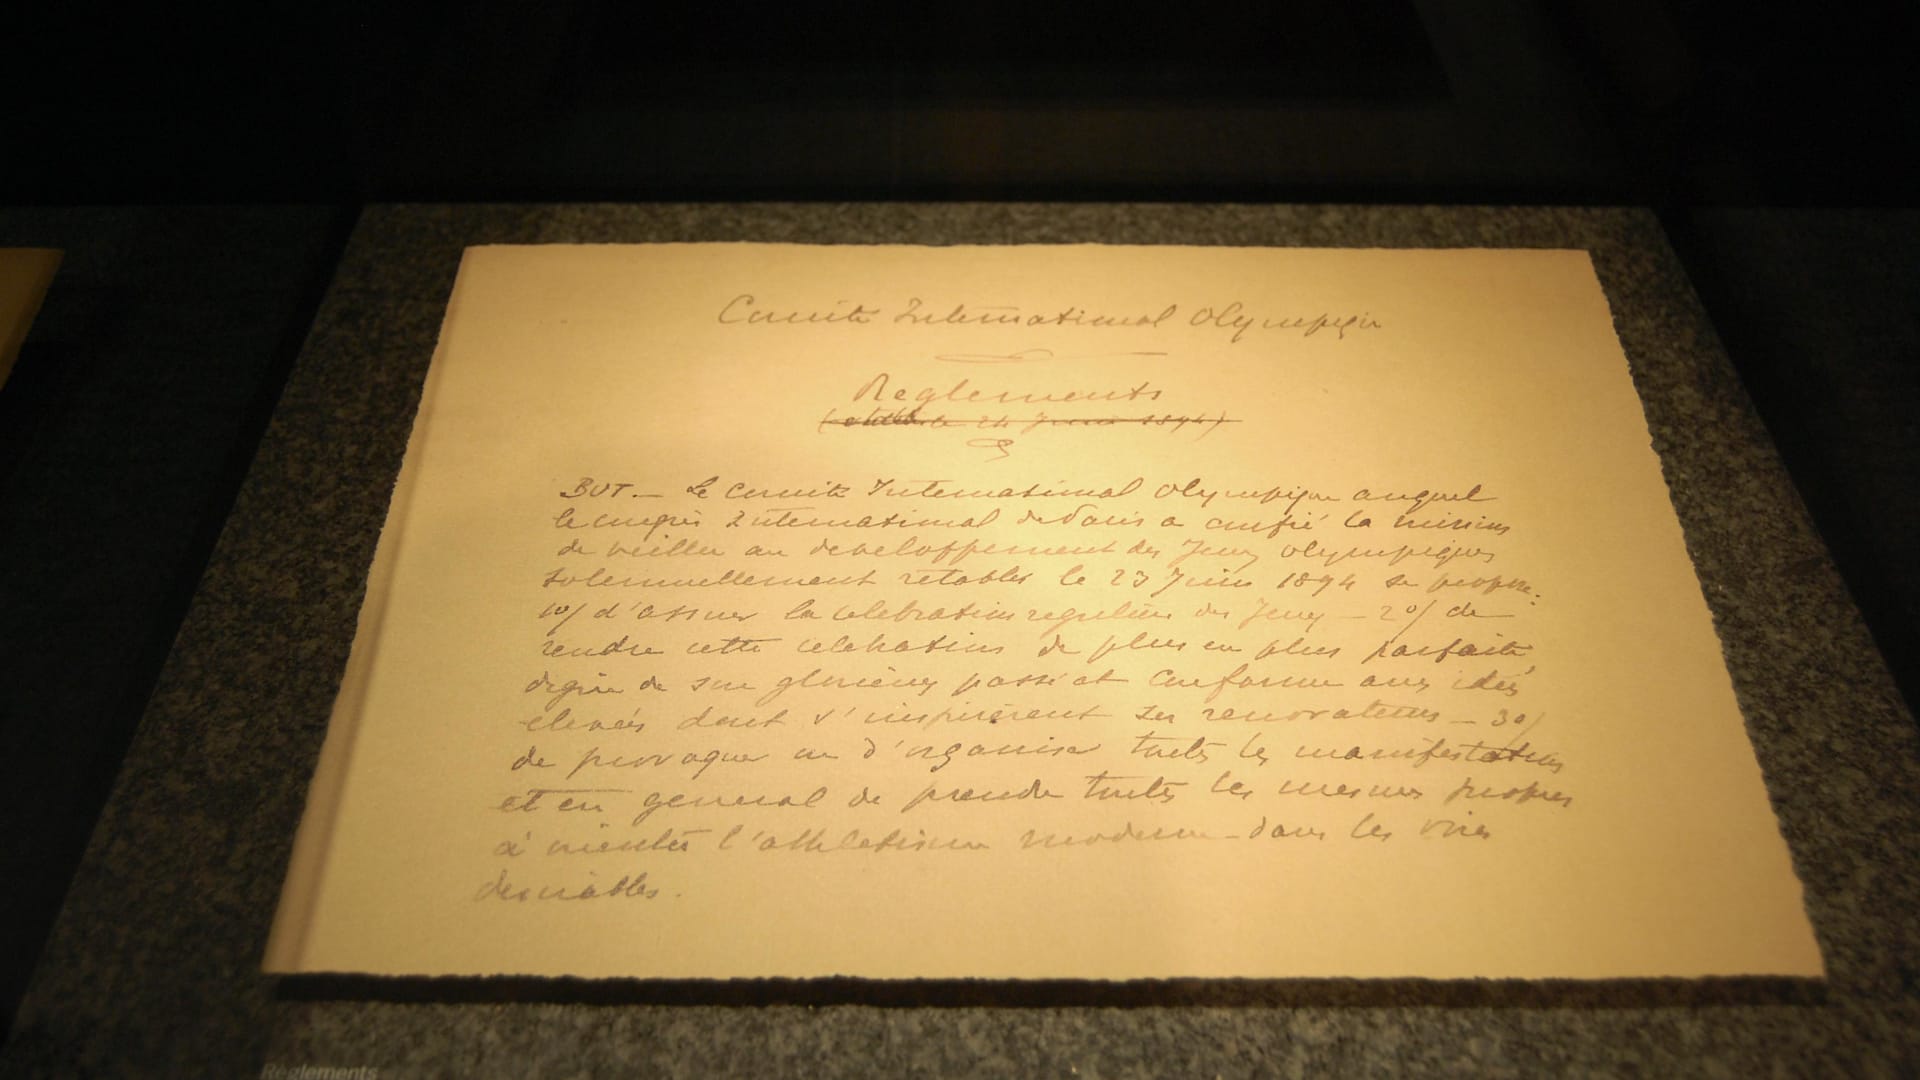 Comité International Olympique
Reglements
(etablis le 24 Juin 1894)
BUT. — Le Comité International Olympique auquel
le congrès International de Paris a confié la mission
de veiller au developpement des Jeux Olympiques
solennellement rétablis le 23 Juin 1894 se propose:
1º/ d'assurer la celebration reguliere des Jeux — 2º/ de
rendre cette celebration de plus en plus parfaite,
digne de son glorieux passé et conforme aux idées
elevées dont s'inspirèrent ses renovateurs — 3º/
de provoquer ou d'organiser toutes les manifestations
et en general de prendre toutes les mesures propres
à orienter l'athletisme moderne dans les voies
desirables.
Règlements